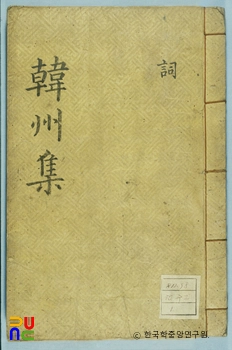 詞
韓州集
ⓒ 한국학중앙연구원